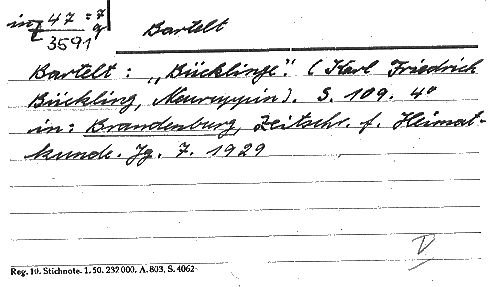 in 47 = 7
3591 q
Bartelt
Bartelt: „Bücklinge“. (Karl Friedrich
Bückling, Neuruppin). S. 109. 4°
in: Brandenburg, Zeitschr. f. Heimat-
kunde. Jg. 7. 1929
V
Reg. 10. Stichnote. 1. 50. 232 000. A. 803. S. 4062